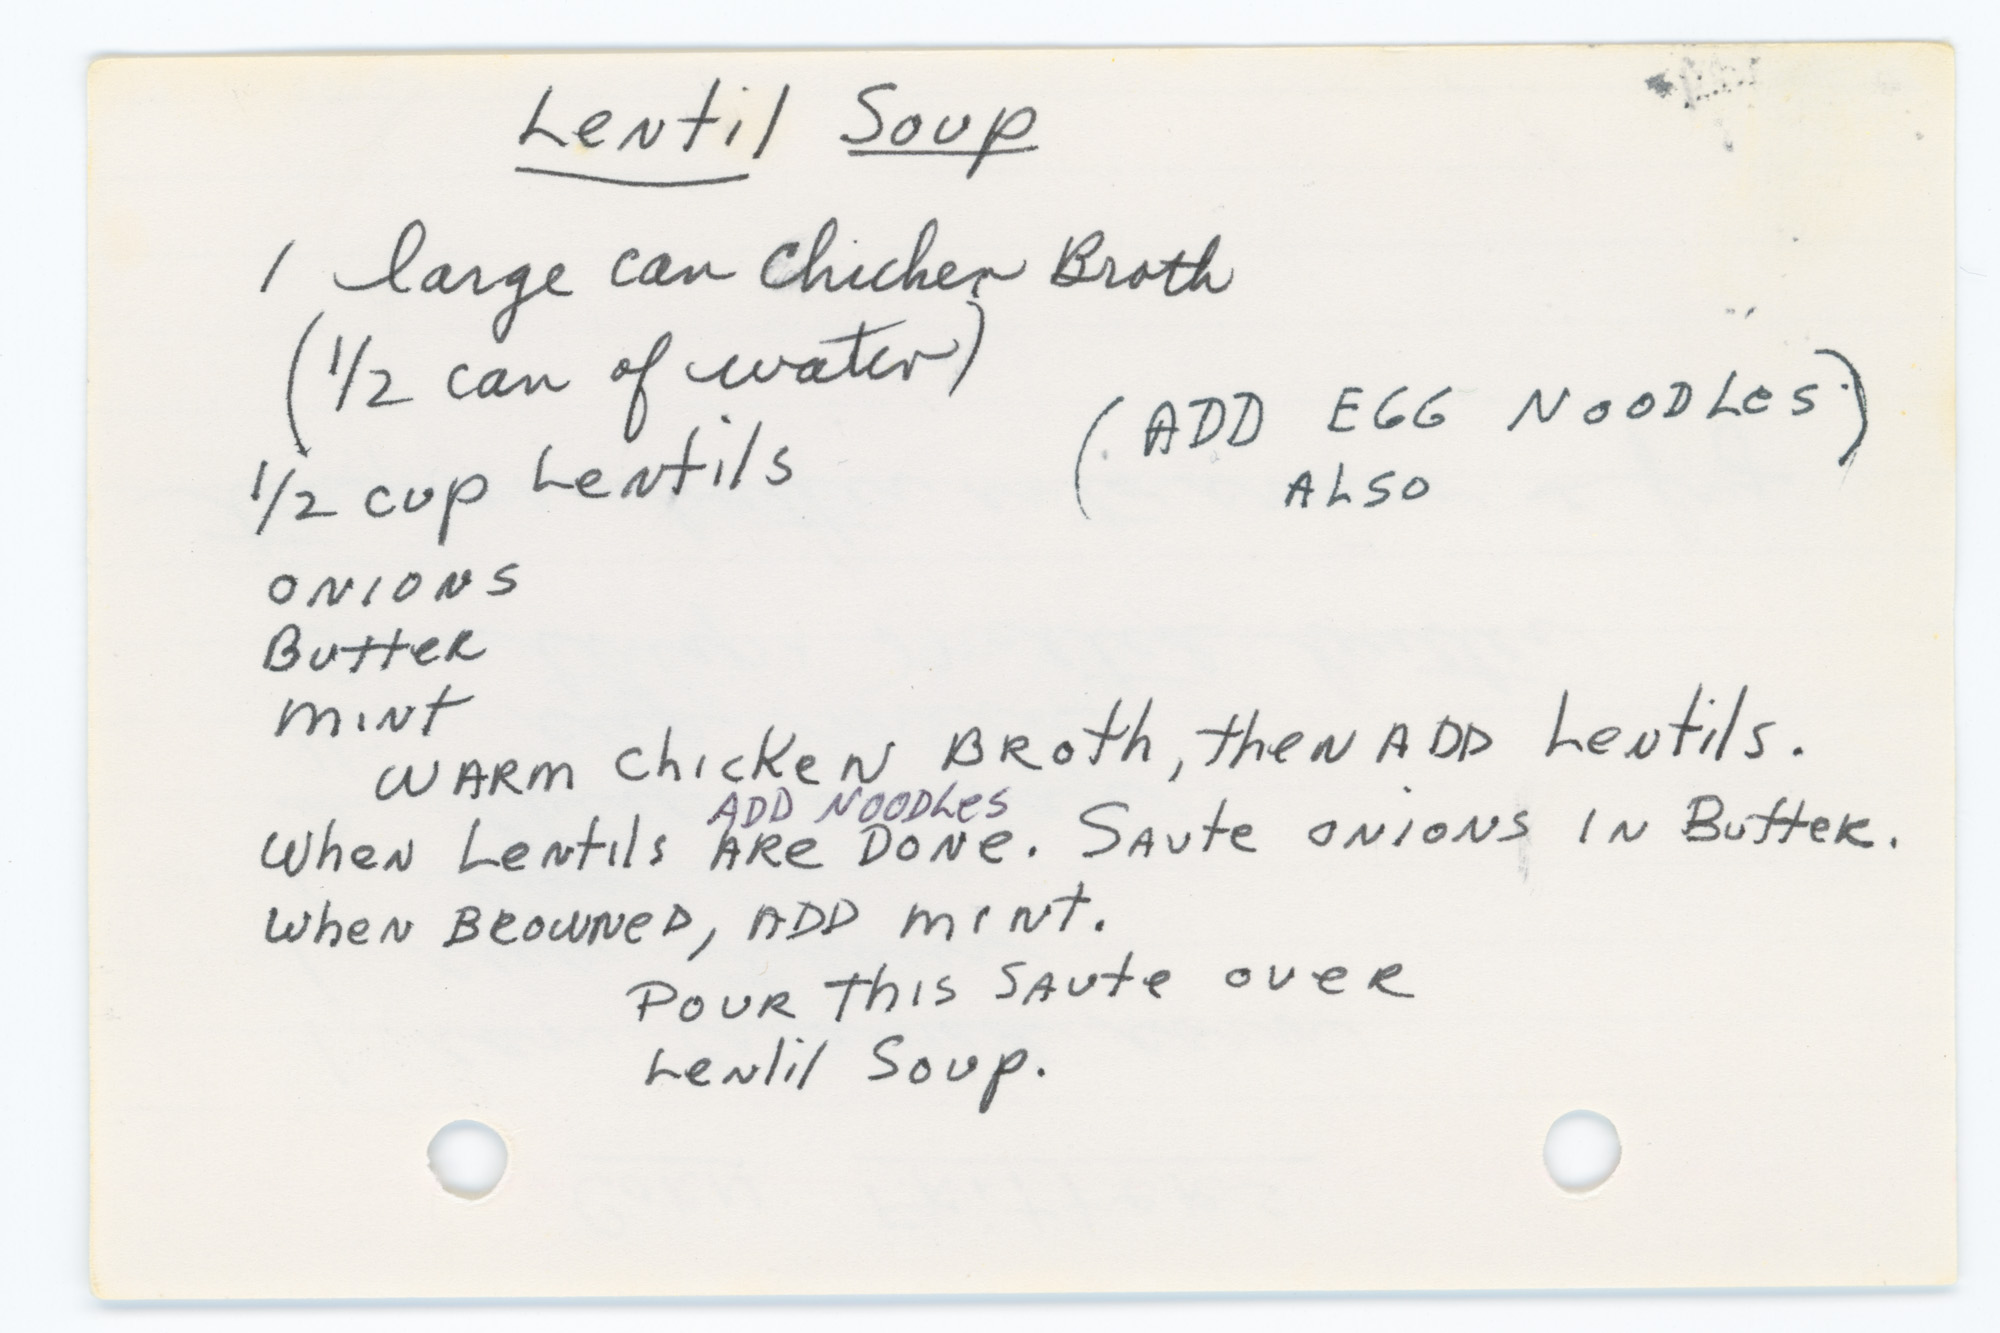 Lentil Soup
1 large can Chicken Broth
(1/2 can of water)
1/2 cup Lentils
(ADD EGG NOODLES)
ALSO
ONIONS
Butter
MINT
WARM Chicken BROth, then ADD Lentils.
ADD NOODLES
When Lentils ARe DONe. SAute ONIONS IN Butter.
When BROWNeD, ADD MINT.
POUR this SAute oveR
Lentil Soup.